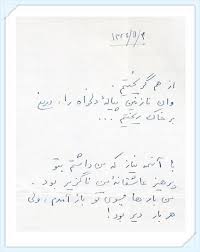 ۱۳۳۴/۱۱/۹
از هم گریختیم.
وان نازنین پیاله دلخواه را، دریغ
بر خاک ریختیم...
با آنهمه نیاز که من داشتم بتو
پرهیز عاشقانه من ناگزیر بود.
من بارها بسوی تو باز آمدم، ولی
هر بار دیر بود!